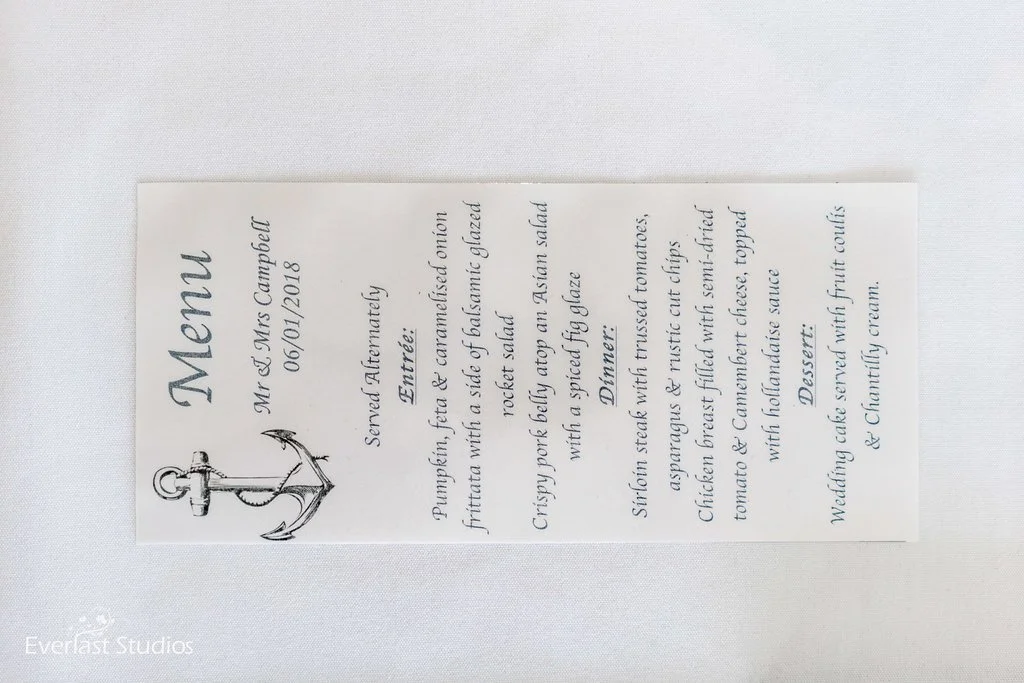 Menu
Mr & Mrs Campbell
06/01/2018
Served Alternately
Entrée:
Pumpkin, feta & caramelised onion
frittata with a side of balsamic glazed
rocket salad
Crispy pork belly atop an Asian salad
with a spiced fig glaze
Dinner:
Sirloin steak with trussed tomatoes,
asparagus & rustic cut chips
Chicken breast filled with semi-dried
tomato & Camembert cheese, topped
with hollandaise sauce
Dessert:
Wedding cake served with fruit coulis
& Chantilly cream.
Everlast Studios